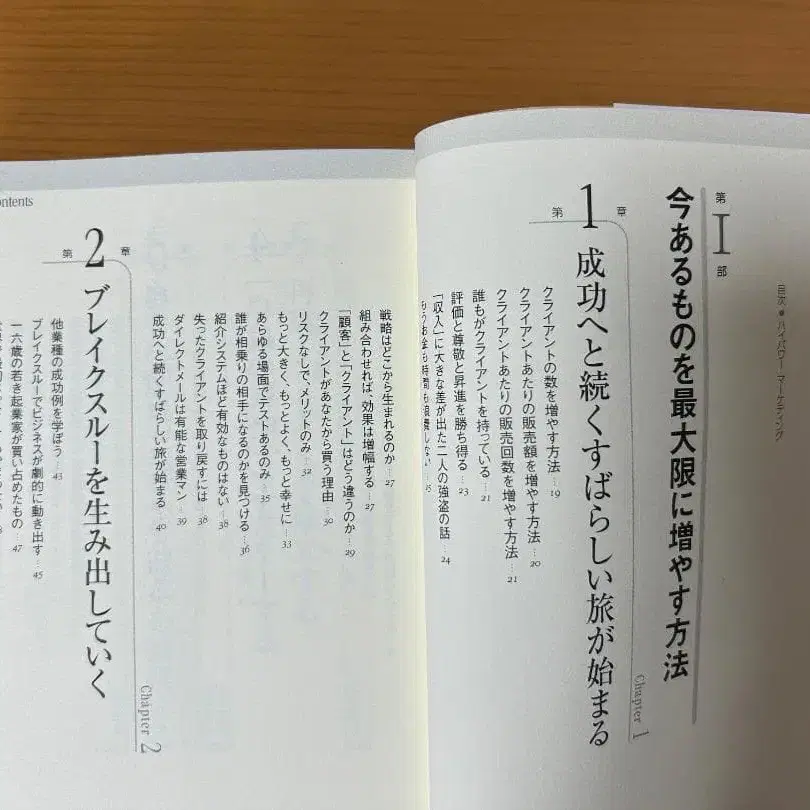 目次●ハイパワー・マーケティング
第Ⅰ部
今あるものを最大限に増やす方法
第1章
成功へと続くすばらしい旅が始まる
Chapter 1
クライアントの数を増やす方法…19
クライアントあたりの販売額を増やす方法…20
クライアントあたりの販売回数を増やす方法…21
誰もがクライアントを持っている…21
評価と尊敬と昇進を勝ち得る…23
「収入」に大きな差が出た二人の強盗の話…24
もうお金も時間も浪費しない…25
戦略はどこから生まれるのか…27
組み合わせれば、効果は増幅する…27
「顧客」と「クライアント」はどう違うのか…29
クライアントがあなたから買う理由…30
リスクなしで、メリットのみ…32
もっと大きく、もっとよく、もっと幸せに…33
あらゆる場面でテストあるのみ…35
誰が相乗りの相手になるのかを見つける…36
紹介システムほど有効なものはない…38
失ったクライアントを取り戻すには…38
ダイレクトメールは有能な営業マン…39
成功へと続くすばらしい旅が始まる…40
第2章
ブレイクスルーを生み出していく
Chapter 2
他業種の成功例を学ぼう…43
ブレイクスルーでビジネスが劇的に動き出す…45
一六歳の若き起業家が買い占めたもの…47